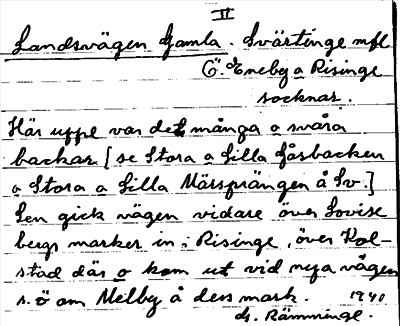 II
Landsvägen Gamla. Svärtinge mfl
Ö. Eneby o Risinge
socknar.
Här uppe var det många o svåra
backar [se Stora o Lilla Gåsbacken
o Stora o Lilla Märsprängen å Sv.]
Sen gick vägen vidare över Lovise
bergs marker in i Risinge, över Kol-
stad där o kom ut vid nya vägen
s. ö om Melby å dess mark. 1940
G. Rämninge.